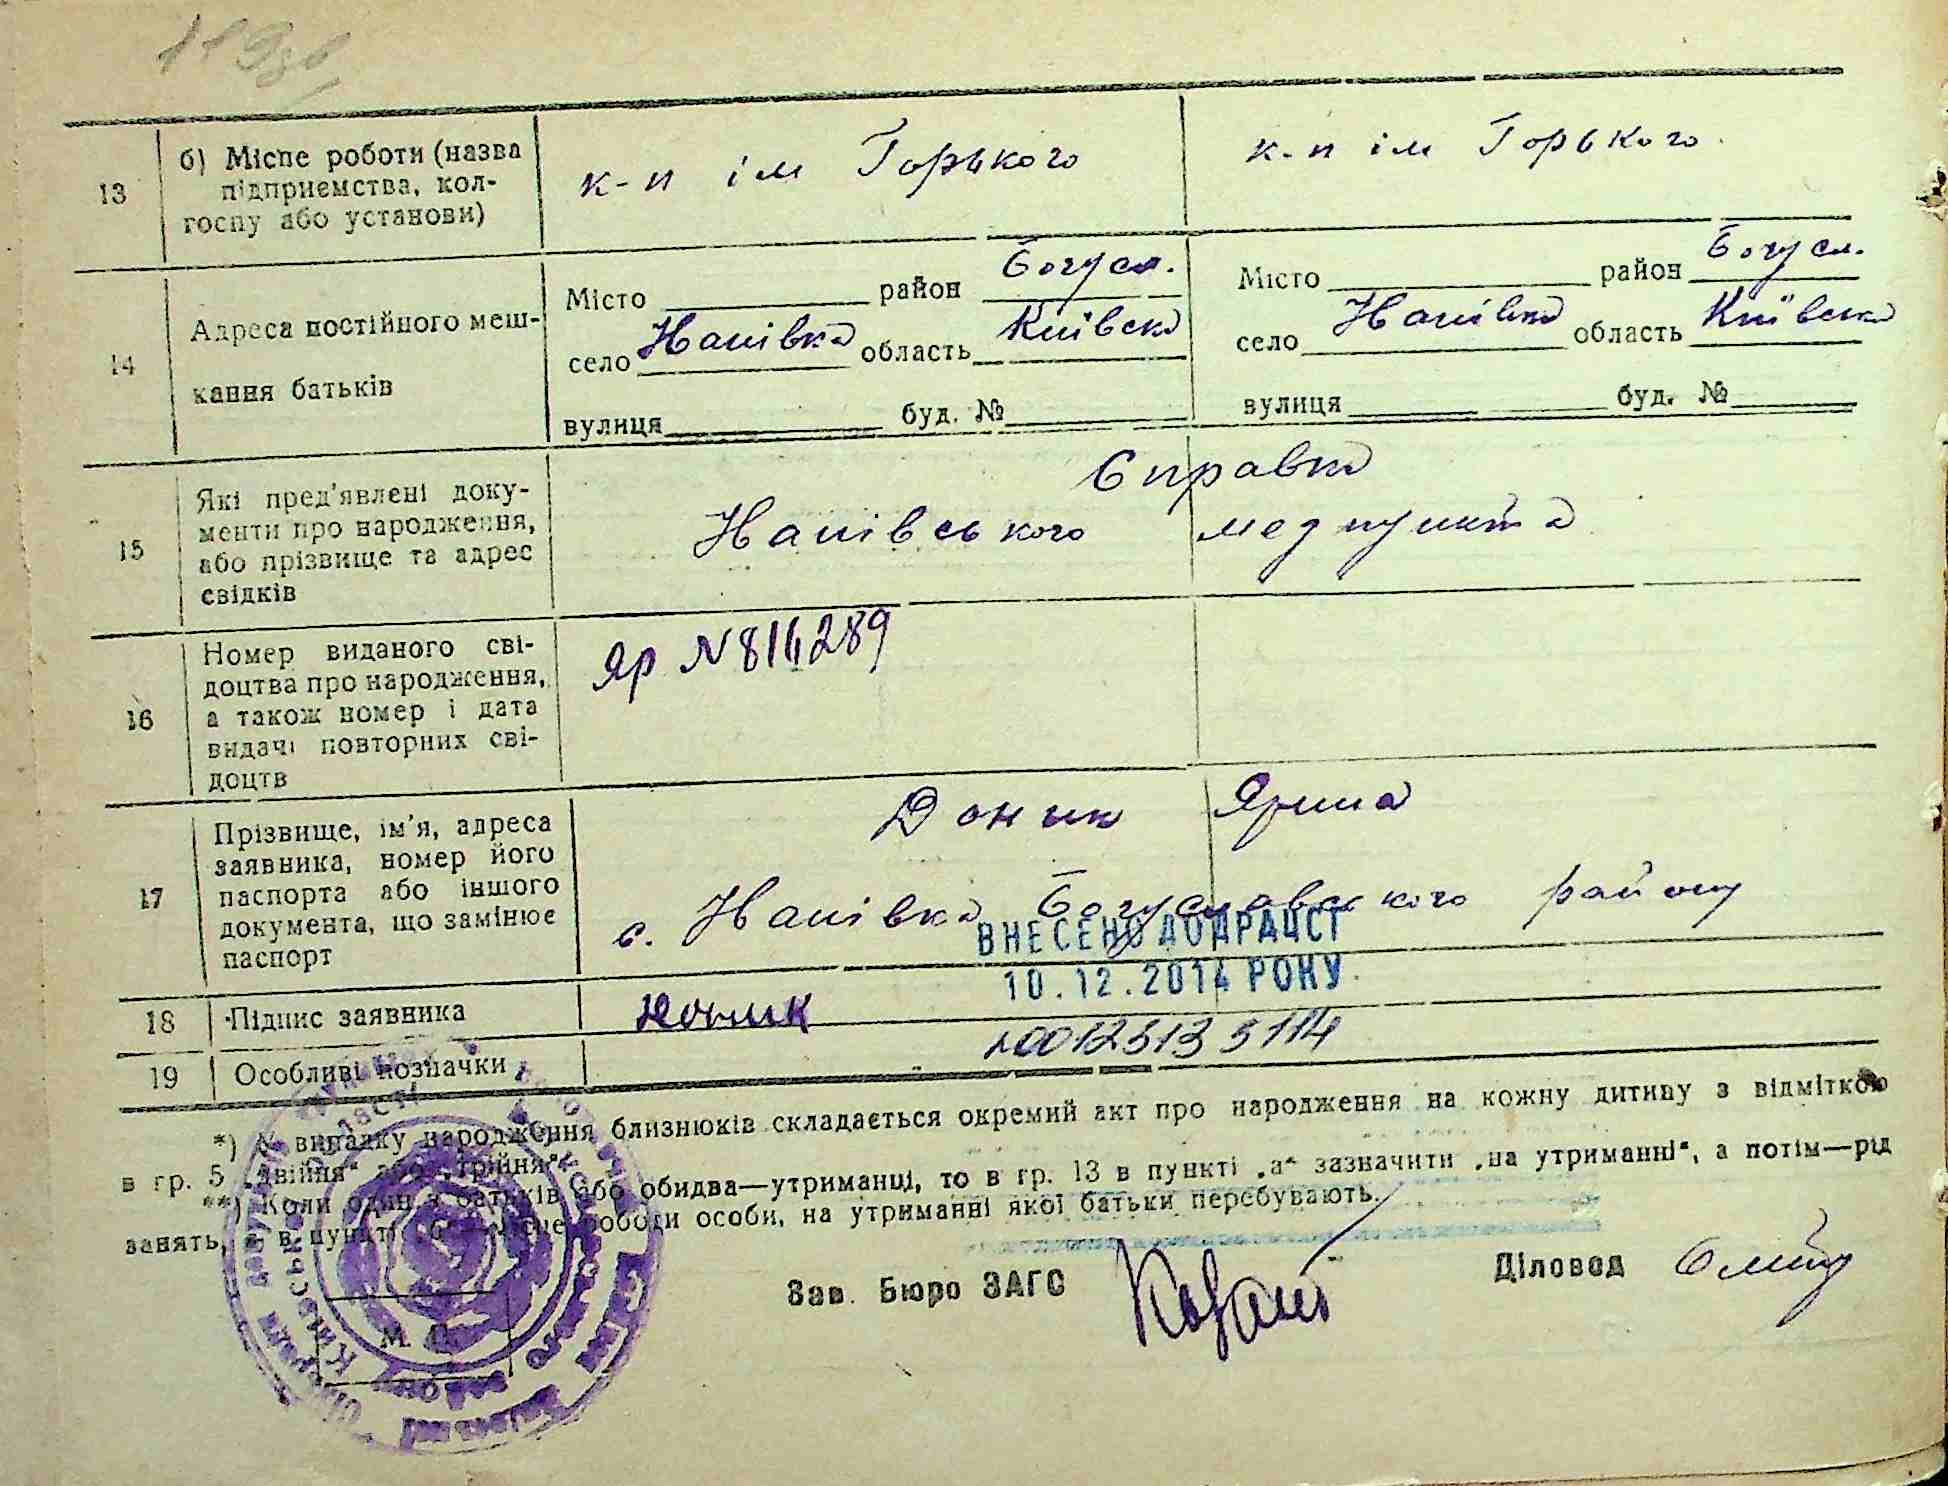 119зв
13
б) Місце роботи (назва
підприємства, кол-
госпу або установи)
к-п ім Горького
к-п ім Горького
14
Адреса постійного меш-
кання батьків
Місто район Богусл.
село Нанівка область Київська
вулиця буд. №
Місто район Богусл.
село Нанівка область Київська
вулиця буд. №
15
Які пред'явлені доку-
менти про народження,
або прізвище та адрес
свідків
Справка
Нанівського медпункта
16
Номер виданого сві-
доцтва про народження,
а також номер і дата
видачі повторних сві-
доцтв
Яр N 816289
17
Прізвище, ім'я, адреса
заявника, номер його
паспорта або іншого
документа, що замінює
паспорт
Доник Ярина
с. Нанівка Богуславського району
ВНЕСЕНО ДО ДРАЦСГ
10.12.2014 РОКУ
18
Підпис заявника
Доник
19
Особливі позначки
00125135114
*) У випадку народження близнюків складається окремий акт про народження на кожну дитину з відміткою
в гр. 5 „двійня“ або „трійня“.
**) Коли один з батьків або обидва—утриманці, то в гр. 13 в пункті „а“ зазначити „на утриманні“, а потім—рід
занять, а в пункті „б“ місце роботи особи, на утриманні якої батьки перебувають.
Зав. Бюро ЗАГС
Діловод
М. П.